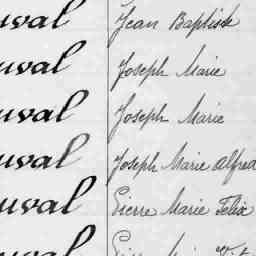 uval Jean Baptiste
uval Joseph Marie
uval Joseph Marie
uval Joseph Marie Alfred
uval Pierre Marie Felix
uval